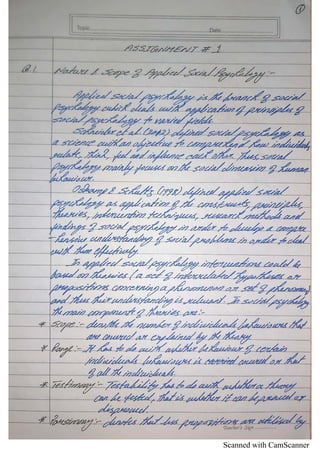 ①
Topic
Date
ASSIGNMENT # 1
Q.1. Nature & Scope of Applied Social Psychology :-
Applied social psychology is the branch of social
psychology which deals with application of principles of
social psychology to varied fields.
Schneider et al (2012) defined social psychology as
a science with an objective to comprehend how individuals
relate, think, feel and influence each other. Thus, social
psychology mainly focuses on the social dimension of human
behaviour.
Oskamp & Schultz (1998) defined applied social
psychology as application of the constructs, principles,
theories, intervention techniques, research methods and
findings of social psychology in order to develop a compre
-hensive understanding of social problems in order to deal
with them effectively.
In applied social psychology interventions could be
based on theories (a set of interrelated hypotheses or
propositions concerning a phenomenon or set of phenomena)
and thus their understanding is relevant. In social psychology
the main component of theories are :-
* Scope :- denotes the number of individuals behaviours that
are covered or explained by the theory.
* Range :- It has to do with whether behaviour of certain
individuals behaviours is covered or that
of all the individuals.
* Testimony :- Testability has to do with whether a theory
can be tested, that is whether it can be proved or
disproved.
* Parsimony :- denotes that less propositions are utilised by
Teacher's Sign
Scanned with CamScanner